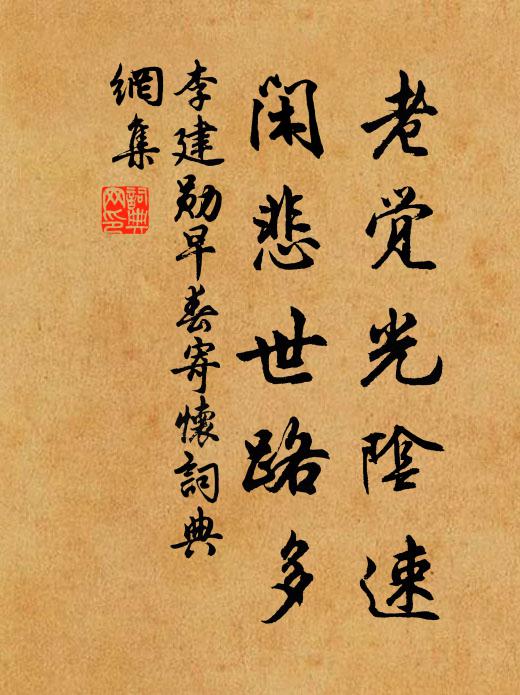 老觉光陰速
闲悲世路多
李建勋早春寄懷詞典
網集
詞典
网印